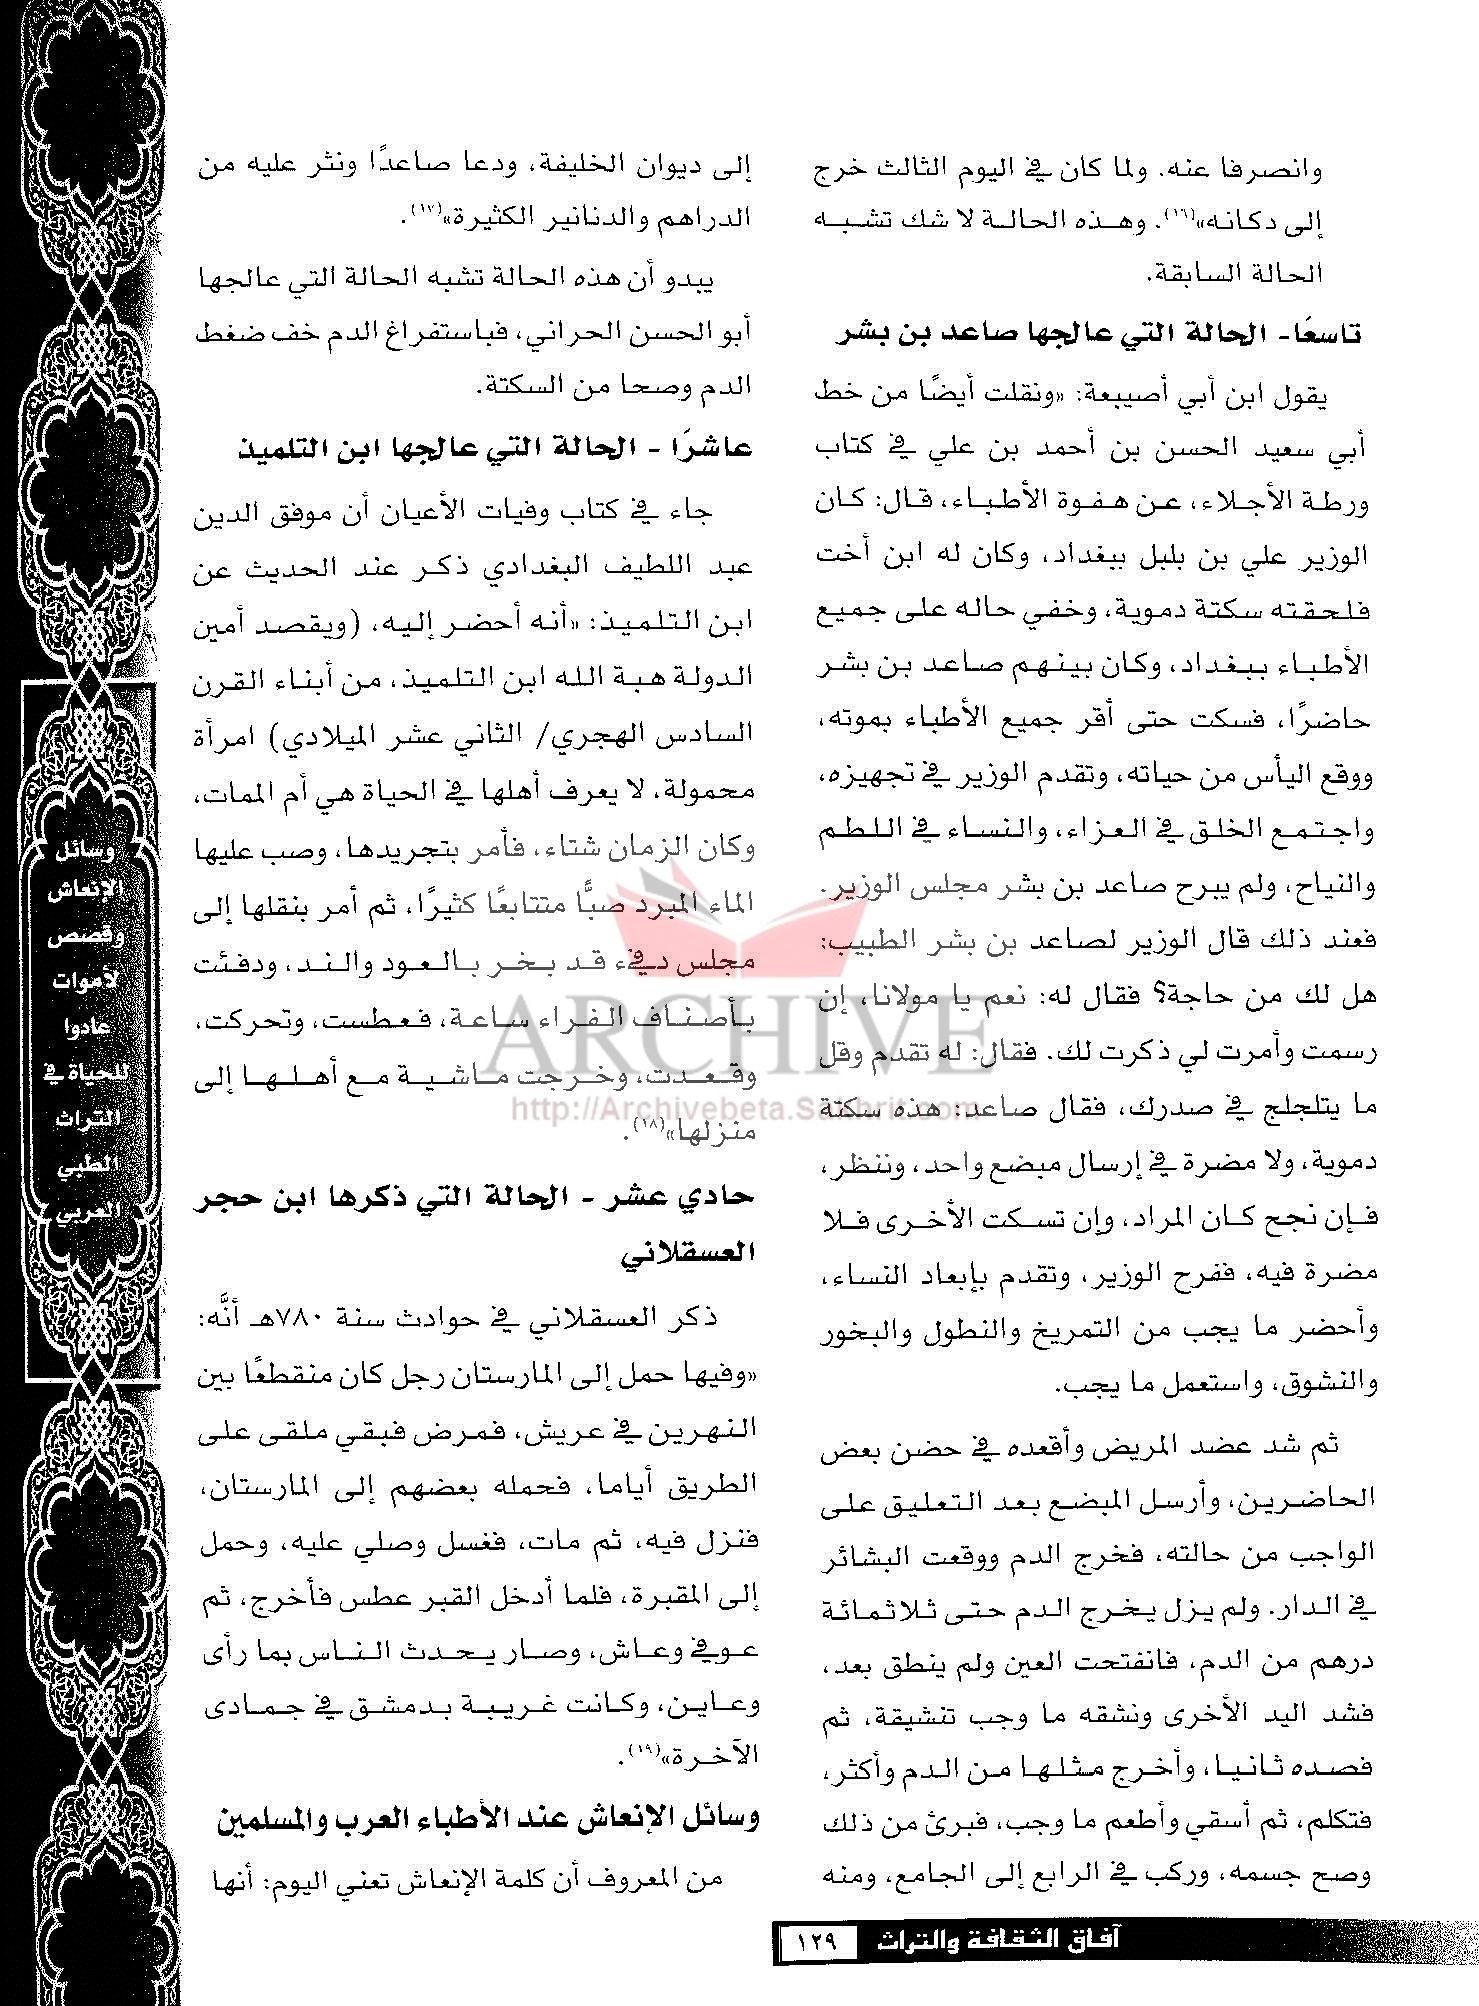 وانصرفا عنه. ولما كان في اليوم الثالث خرج
إلى دكانه»(١٦). وهذه الحالة لا شك تشبه
الحالة السابقة.
تاسعًا- الحالة التي عالجها صاعد بن بشر
يقول ابن أبي أصيبعة: «ونقلت أيضًا من خط
أبي سعيد الحسن بن أحمد بن علي في كتاب
ورطة الأجلاء، عن هفوة الأطباء، قال: كان
الوزير علي بن بلبل ببغداد، وكان له ابن أخت
فلحقته سكتة دموية، وخفي حاله على جميع
الأطباء ببغداد، وكان بينهم صاعد بن بشر
حاضرًا، فسكت حتى أقر جميع الأطباء بموته،
ووقع اليأس من حياته، وتقدم الوزير في تجهيزه،
واجتمع الخلق في العزاء، والنساء في اللطم
والنياح، ولم يبرح صاعد بن بشر مجلس الوزير.
فعند ذلك قال الوزير لصاعد بن بشر الطبيب:
هل لك من حاجة؟ فقال له: نعم يا مولانا، إن
رسمت وأمرت لي ذكرت لك. فقال: له تقدم وقل
ما يتلجلج في صدرك، فقال صاعد: هذه سكتة
دموية، ولا مضرة في إرسال مبضع واحد، وننظر،
فإن نجح كان المراد، وإن تسكت الأخرى فلا
مضرة فيه، ففرح الوزير، وتقدم بإبعاد النساء،
وأحضر ما يجب من التمريخ والنطول والبخور
والنشوق، واستعمل ما يجب.
ثم شد عضد المريض وأقعده في حضن بعض
الحاضرين، وأرسل المبضع بعد التعليق على
الواجب من حالته، فخرج الدم ووقعت البشائر
في الدار. ولم يزل يخرج الدم حتى ثلاثمائة
درهم من الدم، فانفتحت العين ولم ينطق بعد،
فشد اليد الأخرى ونشقه ما وجب تنشيقة، ثم
فصده ثانيا، وأخرج مثلها من الدم وأكثر،
فتكلم، ثم أسقي وأطعم ما وجب، فبرئ من ذلك
وصح جسمه، وركب في الرابع إلى الجامع، ومنه
إلى ديوان الخليفة، ودعا صاعدًا ونثر عليه من
الدراهم والدنانير الكثيرة»(١٧).
يبدو أن هذه الحالة تشبه الحالة التي عالجها
أبو الحسن الحراني، فباستفراغ الدم خف ضغط
الدم وصحا من السكتة.
عاشرًا - الحالة التي عالجها ابن التلميذ
جاء في كتاب وفيات الأعيان أن موفق الدين
عبد اللطيف البغدادي ذكر عند الحديث عن
ابن التلميذ: «أنه أحضر إليه، (ويقصد أمين
الدولة هبة الله ابن التلميذ، من أبناء القرن
السادس الهجري/ الثاني عشر الميلادي) امرأة
محمولة، لا يعرف أهلها في الحياة هي أم الممات،
وكان الزمان شتاء، فأمر بتجريدها، وصب عليها
الماء المبرد صبًّا متتابعًا كثيرًا، ثم أمر بنقلها إلى
مجلس دفيء قد بخر بالعود والند، ودفئت
بأصناف الفراء ساعة، فعطست، وتحركت،
وقعدت، وخرجت ماشية مع أهلها إلى
منزلها»(١٨).
حادي عشر - الحالة التي ذكرها ابن حجر
العسقلاني
ذكر العسقلاني في حوادث سنة ٧٨٠هـ أنَّه:
«وفيها حمل إلى المارستان رجل كان منقطعًا بين
النهرين في عريش، فمرض فبقي ملقى على
الطريق أياما، فحمله بعضهم إلى المارستان،
فنزل فيه، ثم مات، فغسل وصلي عليه، وحمل
إلى المقبرة، فلما أدخل القبر عطس فأخرج، ثم
عوفي وعاش، وصار يحدث الناس بما رأى
وعاين، وكانت غريبة بدمشق في جمادى
الآخرة»(١٩).
وسائل الإنعاش عند الأطباء العرب والمسلمين
من المعروف أن كلمة الإنعاش تعني اليوم: أنها
وسائل
الإنعاش
وقصص
لأموات
عادوا
للحياة في
التراث
الطبي
العربي
ARCHIVE
http://Archivebeta.Sakhrit.com
آفاق الثقافة والتراث ١٢٩